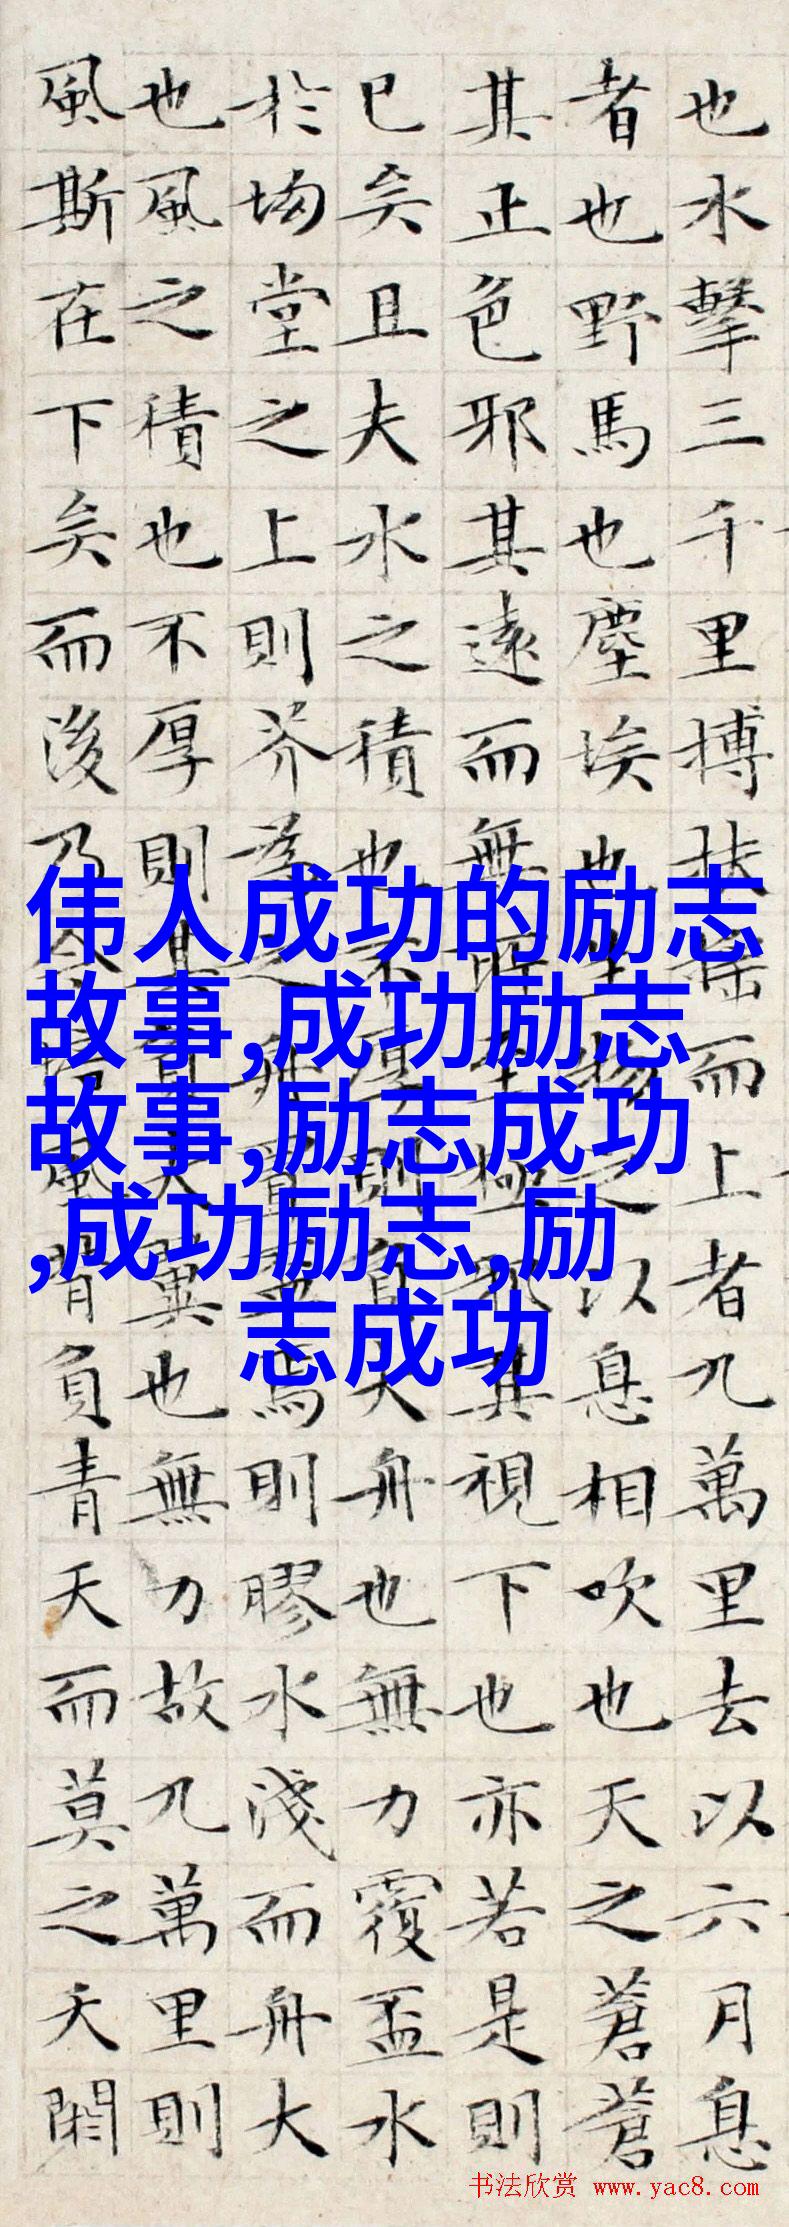 也水擊三千里搏扶摇而上者九萬里去以六月息
者也野馬也塵埃也生物之以息相吹也天之蒼蒼
其正色邪其遠而無所至極邪其視下也亦若是則
已矣且夫水之積也不厚則負大舟也無力覆盃水
於坳堂之上則芥為之舟置盃焉則膠水淺而舟大
也風之積也不厚則其負大翼也無力故九萬里則
風斯在下矣而後乃今培風背負青天而莫之夭閼
伟人成功的励志
故事,成功励志
故事,励志成功
,成功励志,励
志成功
书法欣赏 www.yac8.com